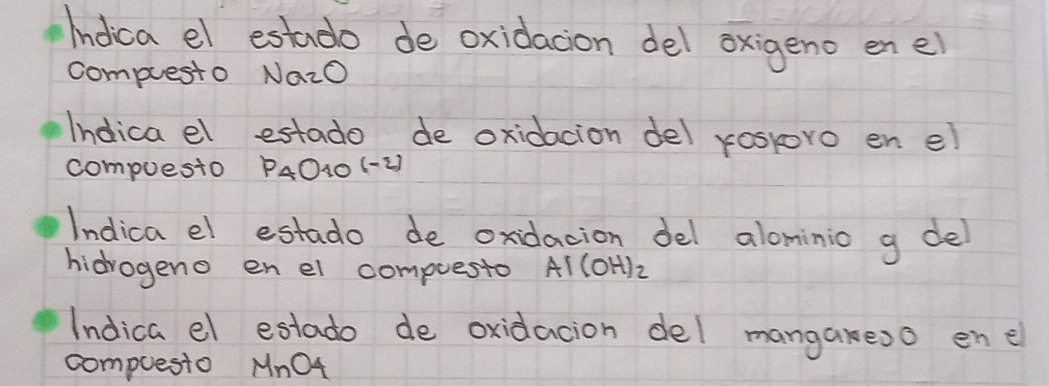 Indica el estado de oxidacion del oxigeno en el
compuesto Na2O
Indica el estado de oxidacion del fosforo en el
compuesto P4O10 (-2)
Indica el estado de oxidacion del aluminio y del
hidrogeno en el compuesto Al(OH)2
Indica el estado de oxidacion del manganeso en el
compuesto MnO4